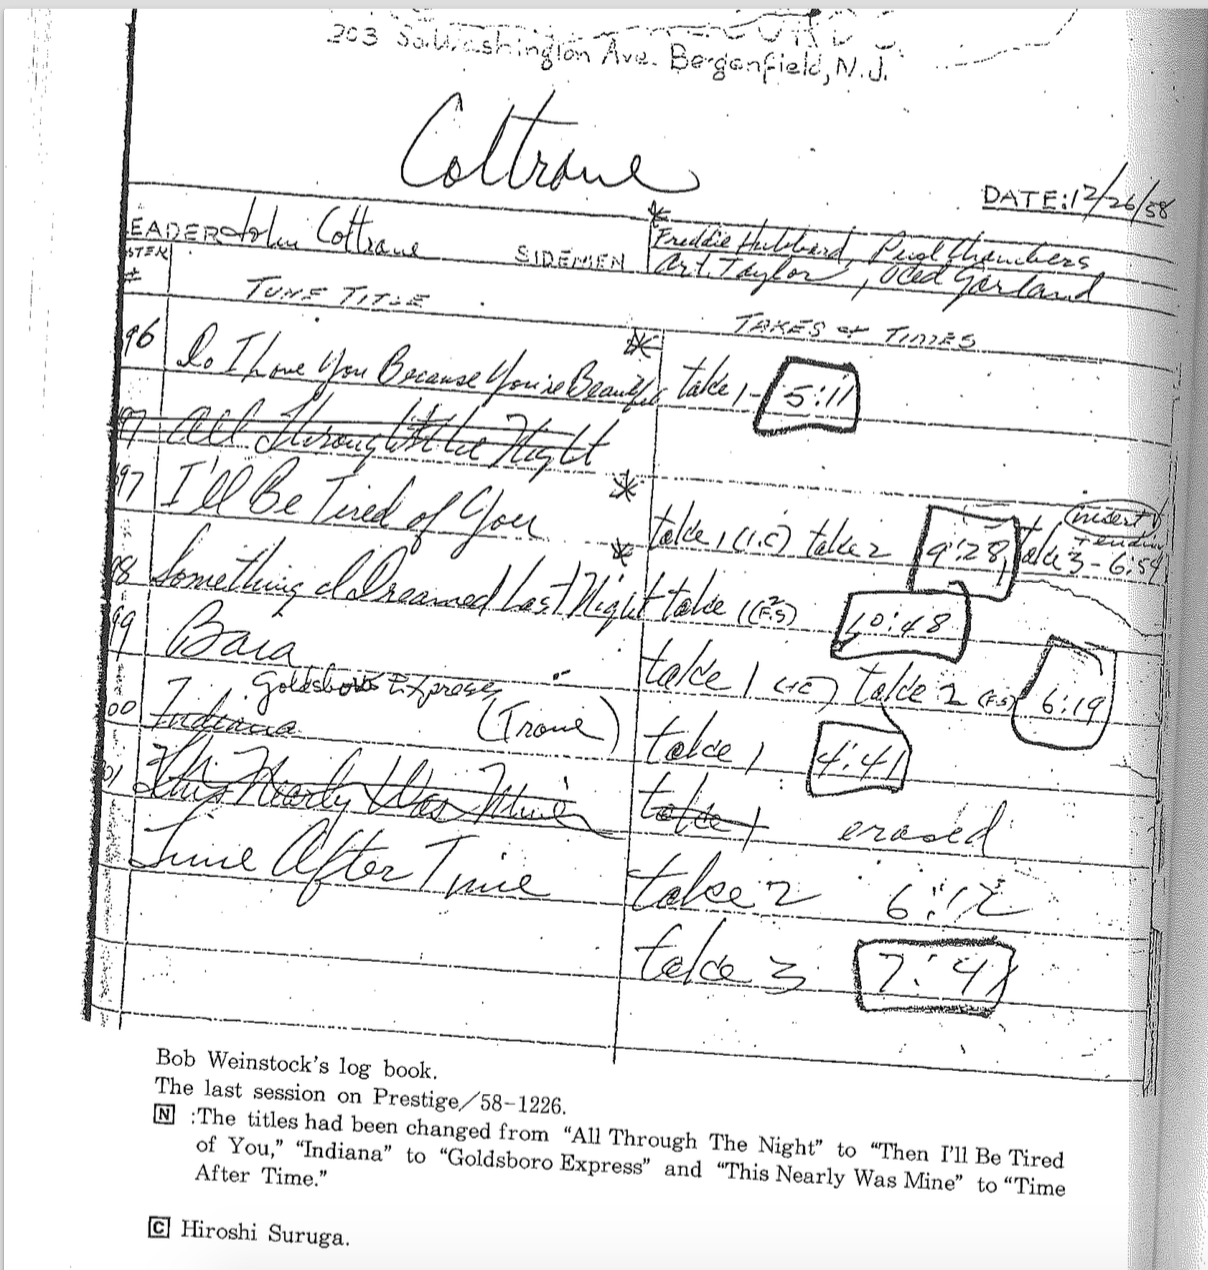 203 So. Washington Ave. Bergenfield, N.J.
Coltrane
DATE: 12/26/58
EADER John Coltrane SIDEMEN * Freddie Hubbard, Paul Chambers
Art Taylor, Red Garland
STER
#
TUNE TITLE TAKES & TIMES
96 Do I Love You Because You're Beautiful * take 1 - 5:11
97 All Through The Night
97 I'll Be Tired of You * take 1 (I.C) take 2 9:28, take 3 - 6:54 insert
98 Something I Dreamed Last Night * take 1 10:48
99 Baia take 1 take 2 (F.S) 6:19
Goldsboro Express
00 Indiana (Trane) take 1 4:41
01 This Nearly Was Mine take 1 erased
Time After Time take 2 6:12
take 3 7:41
Bob Weinstock's log book.
The last session on Prestige/58-1226.
N :The titles had been changed from “All Through The Night” to “Then I'll Be Tired
of You,” “Indiana” to “Goldsboro Express” and “This Nearly Was Mine” to “Time
After Time.”
C Hiroshi Suruga.